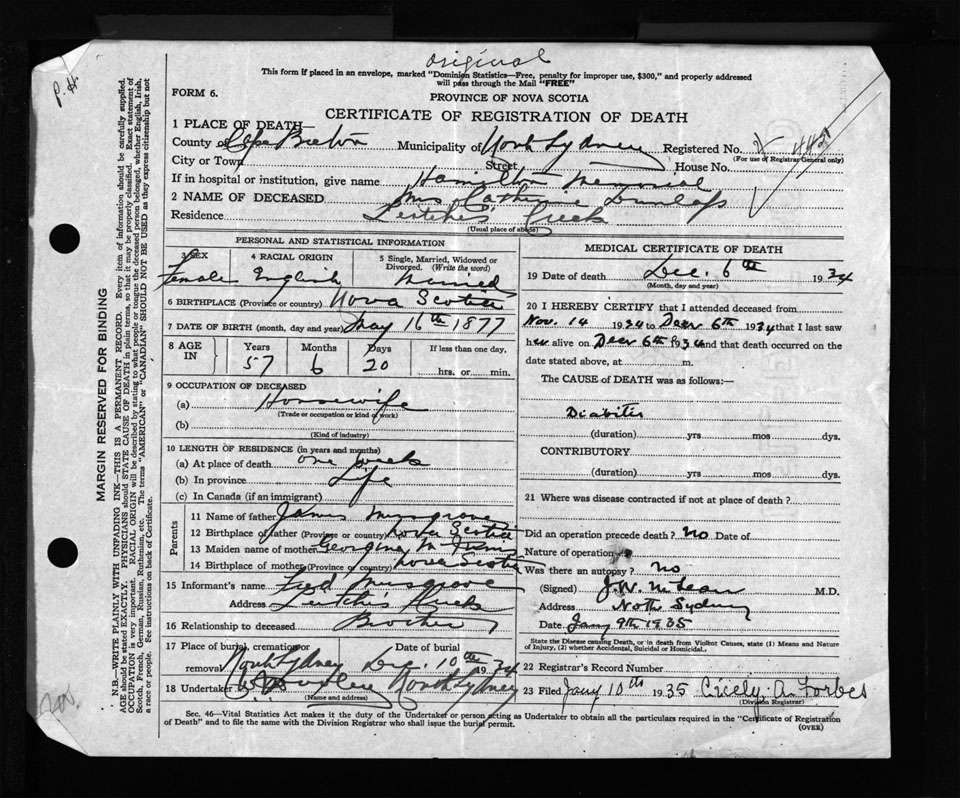 original
P. H.
This form if placed in an envelope, marked "Dominion Statistics—Free, penalty for improper use, $300," and properly addressed
will pass through the Mail "FREE"
FORM 6.
PROVINCE OF NOVA SCOTIA
CERTIFICATE OF REGISTRATION OF DEATH
1 PLACE OF DEATH—
County of Cape Breton Municipality of North Sydney Registered No.
(For use of Registrar General only)
City or Town Street House No.
If in hospital or institution, give name Hamilton Memorial
2 NAME OF DECEASED Mrs Catherine Dunlap
Residence Leitche's Creek
(Usual place of abode)
PERSONAL AND STATISTICAL INFORMATION
3 SEX 4 RACIAL ORIGIN 5 Single, Married, Widowed or
Divorced. (Write the word)
Female English Married
6 BIRTHPLACE (Province or country) Nova Scotia
7 DATE OF BIRTH (month, day and year) May 16th 1877
8 AGE IN Years Months Days If less than one day,
57 6 20 hrs. or min.
9 OCCUPATION OF DECEASED
(a) Housewife
(Trade or occupation or kind of work)
(b)
(Kind of industry)
10 LENGTH OF RESIDENCE (in years and months)
(a) At place of death one week
(b) In province Life
(c) In Canada (if an immigrant)
Parents
11 Name of father James Musgrave
12 Birthplace of father (Province or country) Nova Scotia
13 Maiden name of mother Georgina M
14 Birthplace of mother (Province or country) Nova Scotia
15 Informant's name Fred Musgrave
Address Leitch's Creek
16 Relationship to deceased Brother
17 Place of burial, cremation or Date of burial
removal North Sydney Dec. 10th 1934
18 Undertaker North Sydney
(Name and address)
MEDICAL CERTIFICATE OF DEATH
19 Date of death Dec. 6th 1934
(Month, day and year)
20 I HEREBY CERTIFY that I attended deceased from
Nov. 14 1934 to Decr 6th 1934 that I last saw
her alive on Decr 6th 1934 and that death occurred on the
date stated above, at m.
The CAUSE of DEATH was as follows:—
Diabites
(duration) yrs mos dys.
CONTRIBUTORY
(duration) yrs mos dys.
21 Where was disease contracted if not at place of death?
Did an operation precede death? No Date of
Nature of operation
Was there an autopsy? No
(Signed) J.W. McLean M.D.
Address North Sydney
Date Jany 9th 1935
State the Disease causing Death, or in death from Violent Causes, state (1) Means and Nature
of Injury, (2) whether Accidental, Suicidal or Homicidal.
22 Registrar's Record Number
23 Filed Jany 10th 1935 Cicely A. Forbes
(Division Registrar)
Sec. 46—Vital Statistics Act makes it the duty of the Undertaker or person acting as Undertaker to obtain all the particulars required in the "Certificate of Registration
of Death" and to file the same with the Division Registrar who shall issue the burial permit.
(OVER)
MARGIN RESERVED FOR BINDING
N.B.—WRITE PLAINLY WITH UNFADING INK—THIS IS A PERMANENT RECORD. Every item of information should be carefully supplied.
AGE should be stated EXACTLY. PHYSICIANS should STATE CAUSE OF DEATH in plain terms, so that it may be properly classified. Exact statement of
OCCUPATION is very important. RACIAL ORIGIN will be described by stating to what people or tongue the deceased person belonged, whether English, Irish,
Scotch, French, German, Russian, Ruthenian, etc. The terms "AMERICAN" or "CANADIAN" SHOULD NOT BE USED as they express citizenship but not
a race or people. See instructions on back of Certificate.